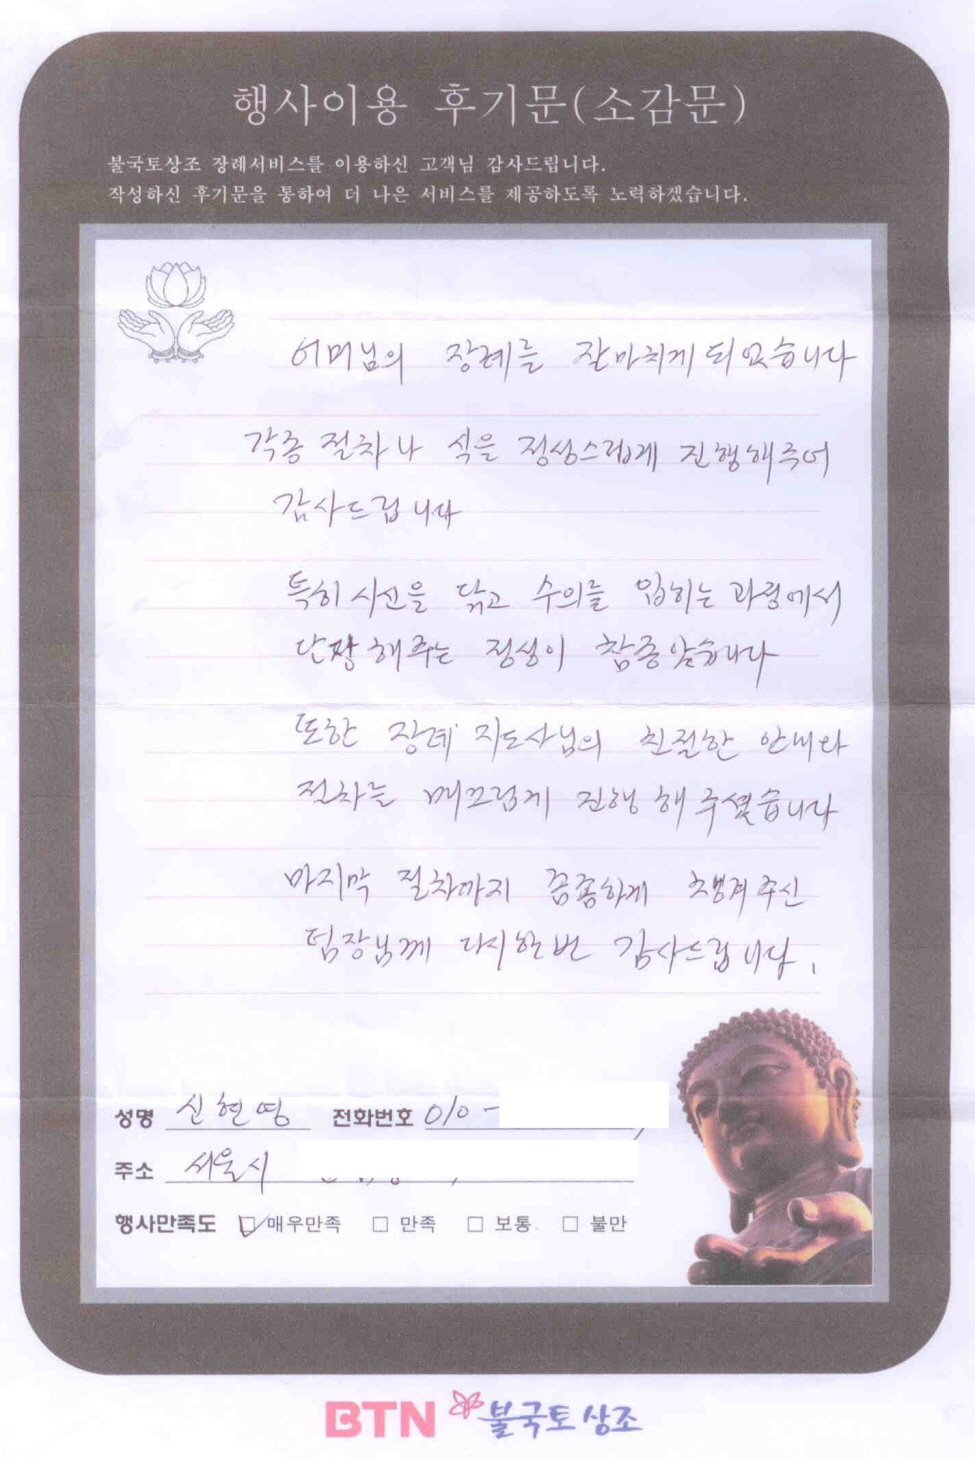 행사이용 후기문(소감문)
불국토상조 장례서비스를 이용하신 고객님 감사드립니다.
작성하신 후기문을 통하여 더 나은 서비스를 제공하도록 노력하겠습니다.
어머님의 장례를 잘마치게 되었습니다
각종 절차나 식을 정성스럽게 진행해주어
감사드립니다
특히 시신을 닦고 수의를 입히는 과정에서
단장해주는 정성이 참좋았습니다
또한 장례 지도사님의 친절한 안내와
절차를 매끄럽게 진행해주셨습니다
마지막 절차까지 꼼꼼하게 챙겨주신
팀장님께 다시한번 감사드립니다.
성명 신현명 전화번호 010 -
주소 서울시
행사만족도 매우만족 만족 보통 불만
BTN 불국토상조